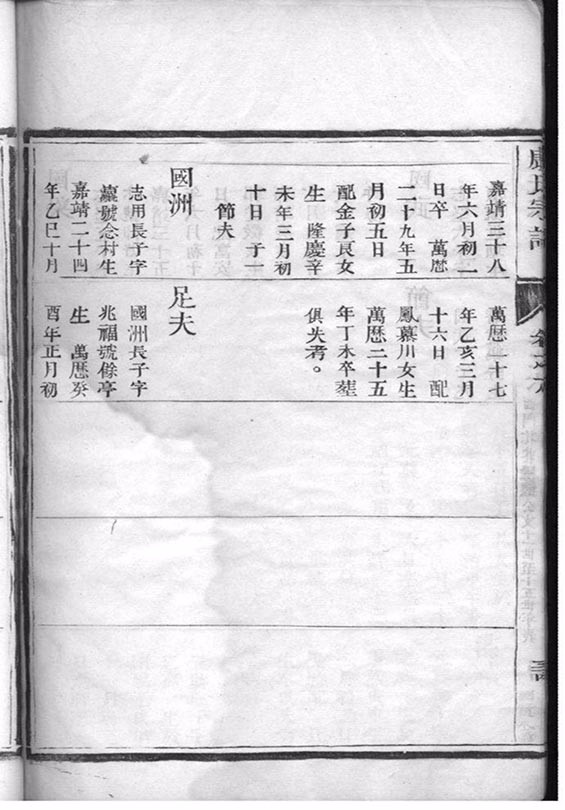 氏宗譜
卷之
嘉靖三十八
年六月初一
日卒 萬曆
二十九年五
月初五日
配金子良女
生 隆慶辛
未年三月初
十日 子
節夫
國洲
志用長子字
瀛號念村生
嘉靖二十四
年乙巳十月
萬曆二十七
年乙亥三月
十六日 配
鳳慕川女生
萬曆二十五
年丁未卒塟
俱失考。
足夫
國洲長子字
兆福號條亭
生 萬曆癸
酉年正月初